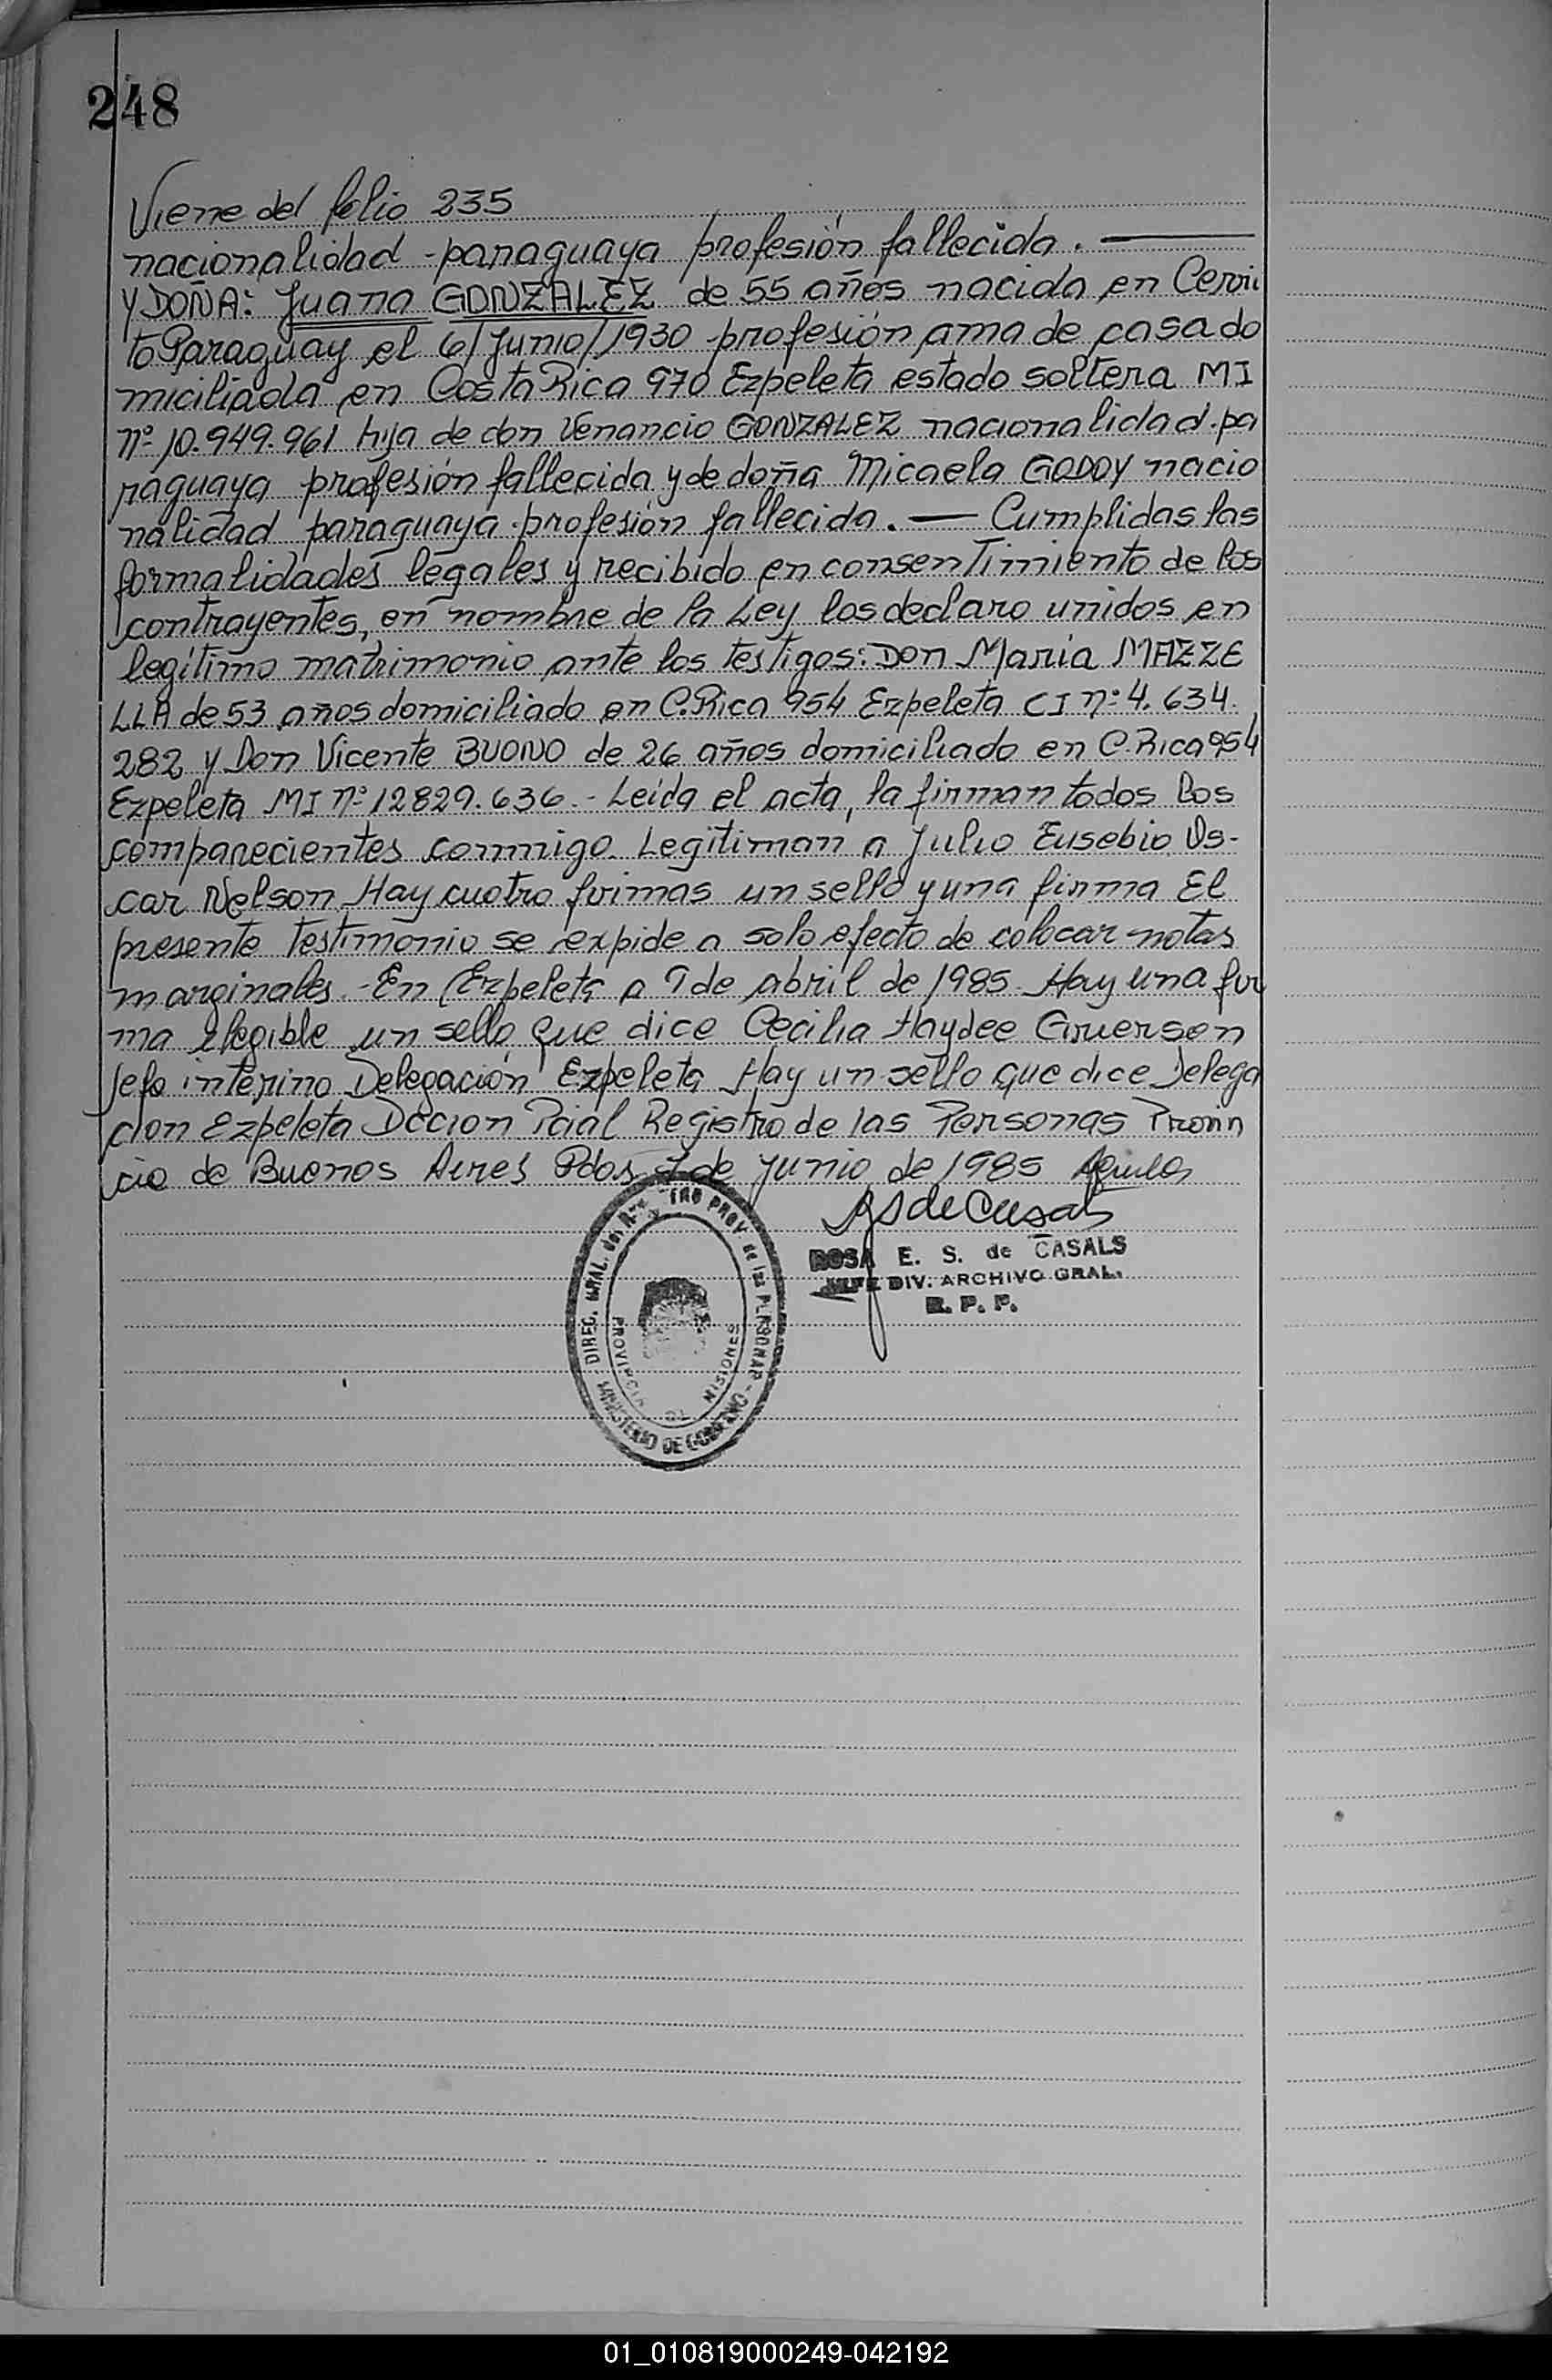 248
Viene del folio 235
nacionalidad - paraguaya profesión fallecida. —
Y DOÑA: Juana GONZALEZ de 55 años nacida en Cerri
to Paraguay el 6/Junio/1930 profesión ama de casa do
miciliada en Costa Rica 970 Ezpeleta estado soltera MI
nº 10.949.961 hija de don Venancio GONZALEZ nacionalidad pa
raguaya profesión fallecida y de doña Micaela GODOY nacio
nalidad paraguaya profesión fallecida. — Cumplidas las
formalidades legales y recibido en consentimiento de los
contrayentes, en nombre de la Ley los declaro unidos en
legítimo matrimonio ante los testigos: Don Maria MAZZE
LLA de 53 años domiciliado en C. Rica 954 Ezpeleta CI nº 4.634.
282 y Don Vicente BUONO de 26 años domiciliado en C. Rica 954
Ezpeleta MI Nº 12829.636 .- Leida el acta, la firman todos los
comparecientes conmigo. Legitiman a Julio Eusebio Os-
car Nelson Hay cuatro firmas un sello y una firma El
presente testimonio se expide a solo efecto de colocar notas
marginales .- En Ezpeleta a 9 de abril de 1985 . Hay una fir
ma ilegible un sello que dice Cecilia Haydee Grierson
Jefe interino Delegación Ezpeleta Hay un sello que dice Delega
cion Ezpeleta Dccion Pcial Registro de las Personas Provin
cia de Buenos Aires Pdos 7 de Junio de 1985
RS de Casals
ROSA E. S. de CASALS
JEFE DIV. ARCHIVO GRAL.
R. P. P.
DIREC. GRAL. del REGISTRO PROV de las PERSONAS -
MINISTERIO DE GOBIERNO -
PROVINCIA DE MISIONES
01_010819000249-042192